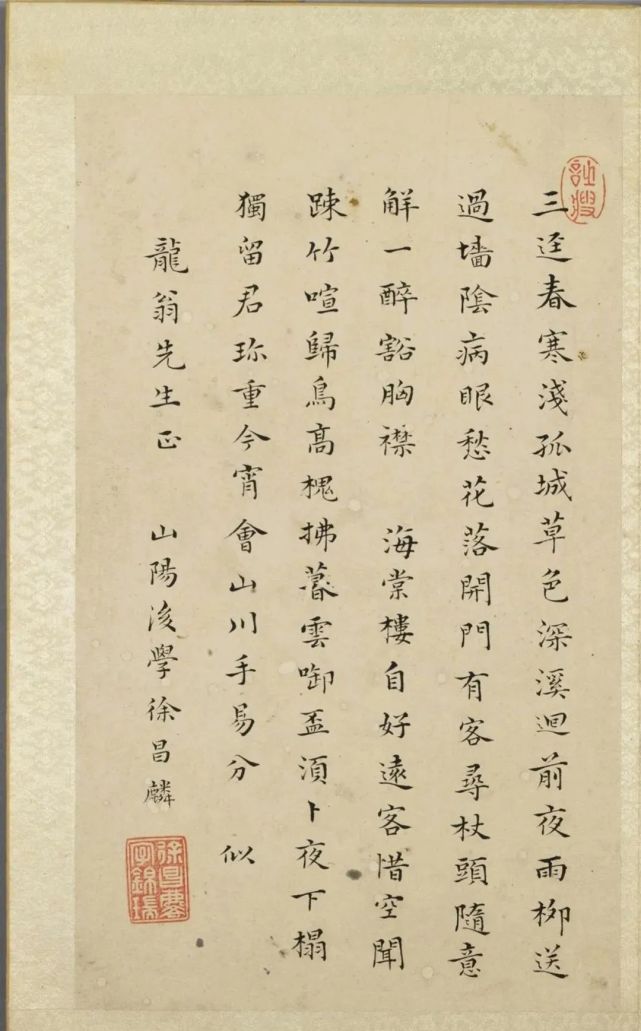 三逕春寒淺孤城草色深溪迴前夜雨柳送
過墻陰病眼愁花落開門有客尋杖頭隨意
解一醉豁胸襟 海棠樓自好遠客惜空聞
踈竹喧歸鳥高槐拂暮雲啣盃須卜夜下榻
獨留君珎重今宵會山川手易分 似
龍翁先生正 山陽後學徐昌麟